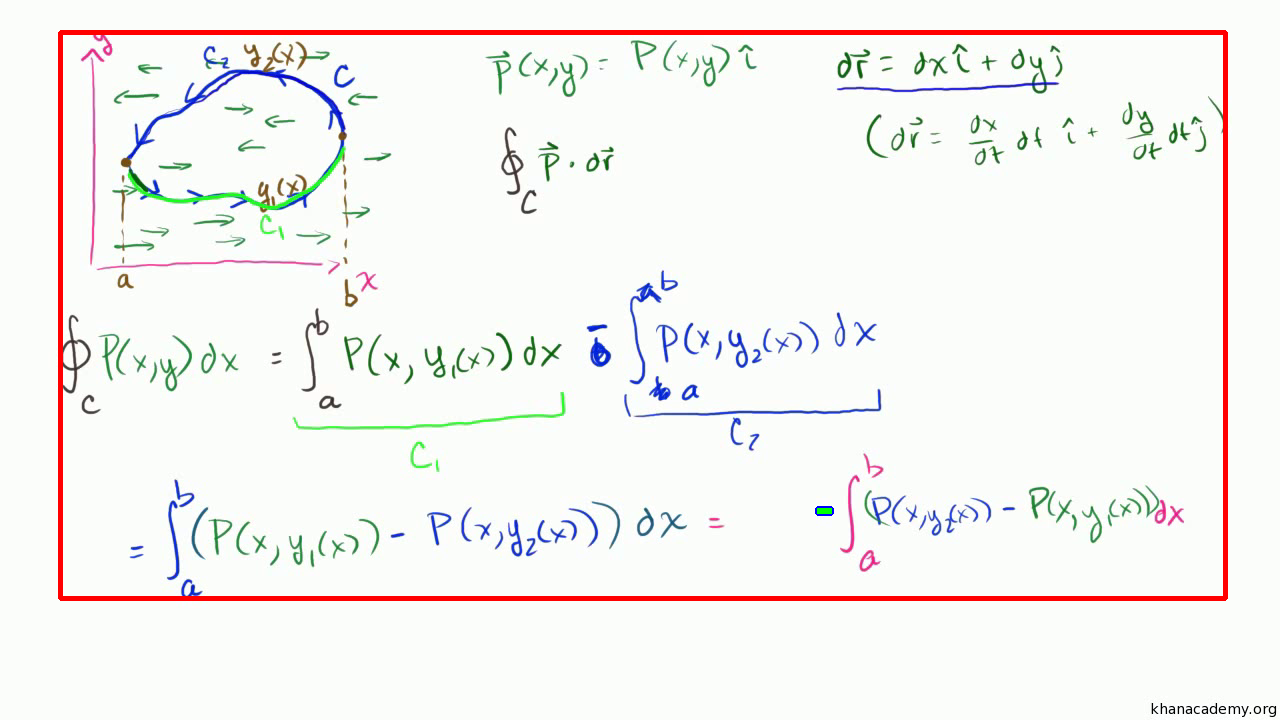 y
C₂ y₂(x)
C
y₁(x)
C₁
a
b x
p⃗(x,y) = P(x,y) î
∮_C p⃗ · dr⃗
dr⃗ = dx î + dy ĵ
(dr⃗ = dx/dt dt î + dy/dt dt ĵ)
∮_C P(x,y) dx = ∫_a^b P(x, y₁(x)) dx - ∫_a^b P(x, y₂(x)) dx
C₁
C₂
= ∫_a^b (P(x, y₁(x)) - P(x, y₂(x))) dx = - ∫_a^b (P(x, y₂(x)) - P(x, y₁(x))) dx
khanacademy.org